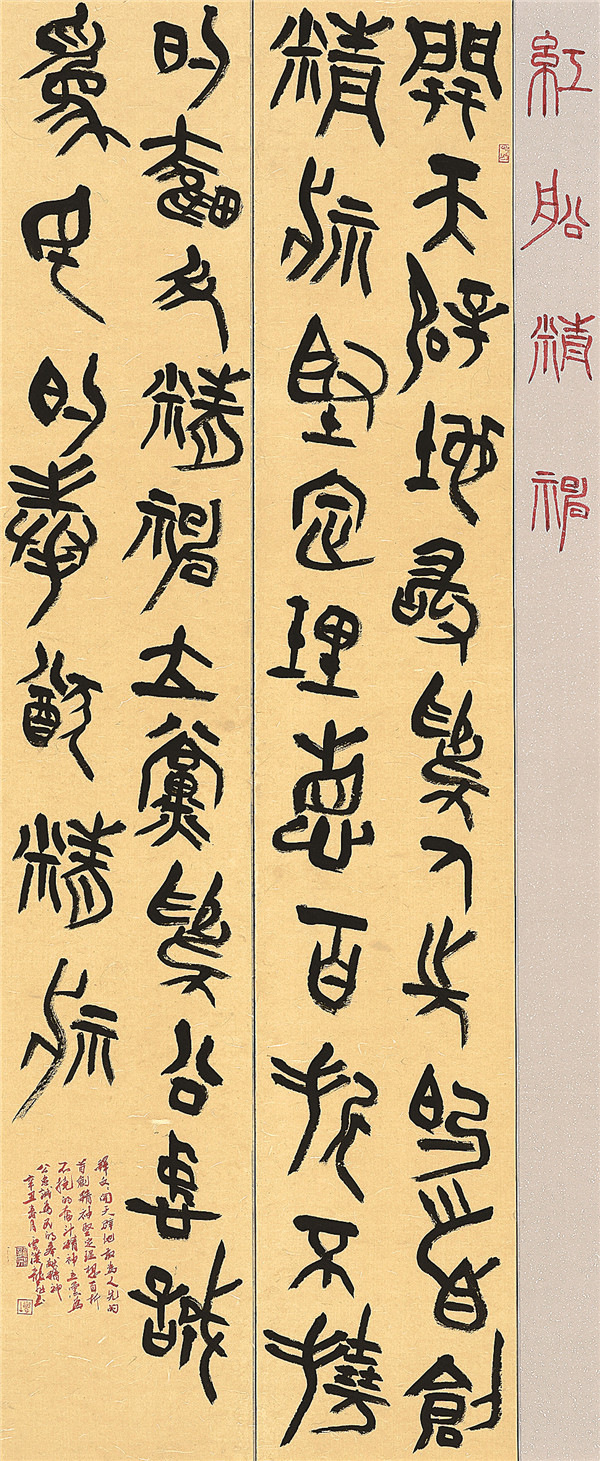 紅船精神
開天辟地敢為人先的首創
精神堅定理想百折不撓
的奮鬥精神立黨為公忠誠
為民的奉獻精神
释文开天辟地敢為人先的
首創精神堅定理想百折
不撓的奋斗精神立党為
公忠誠為民的奉献精神
辛丑春月